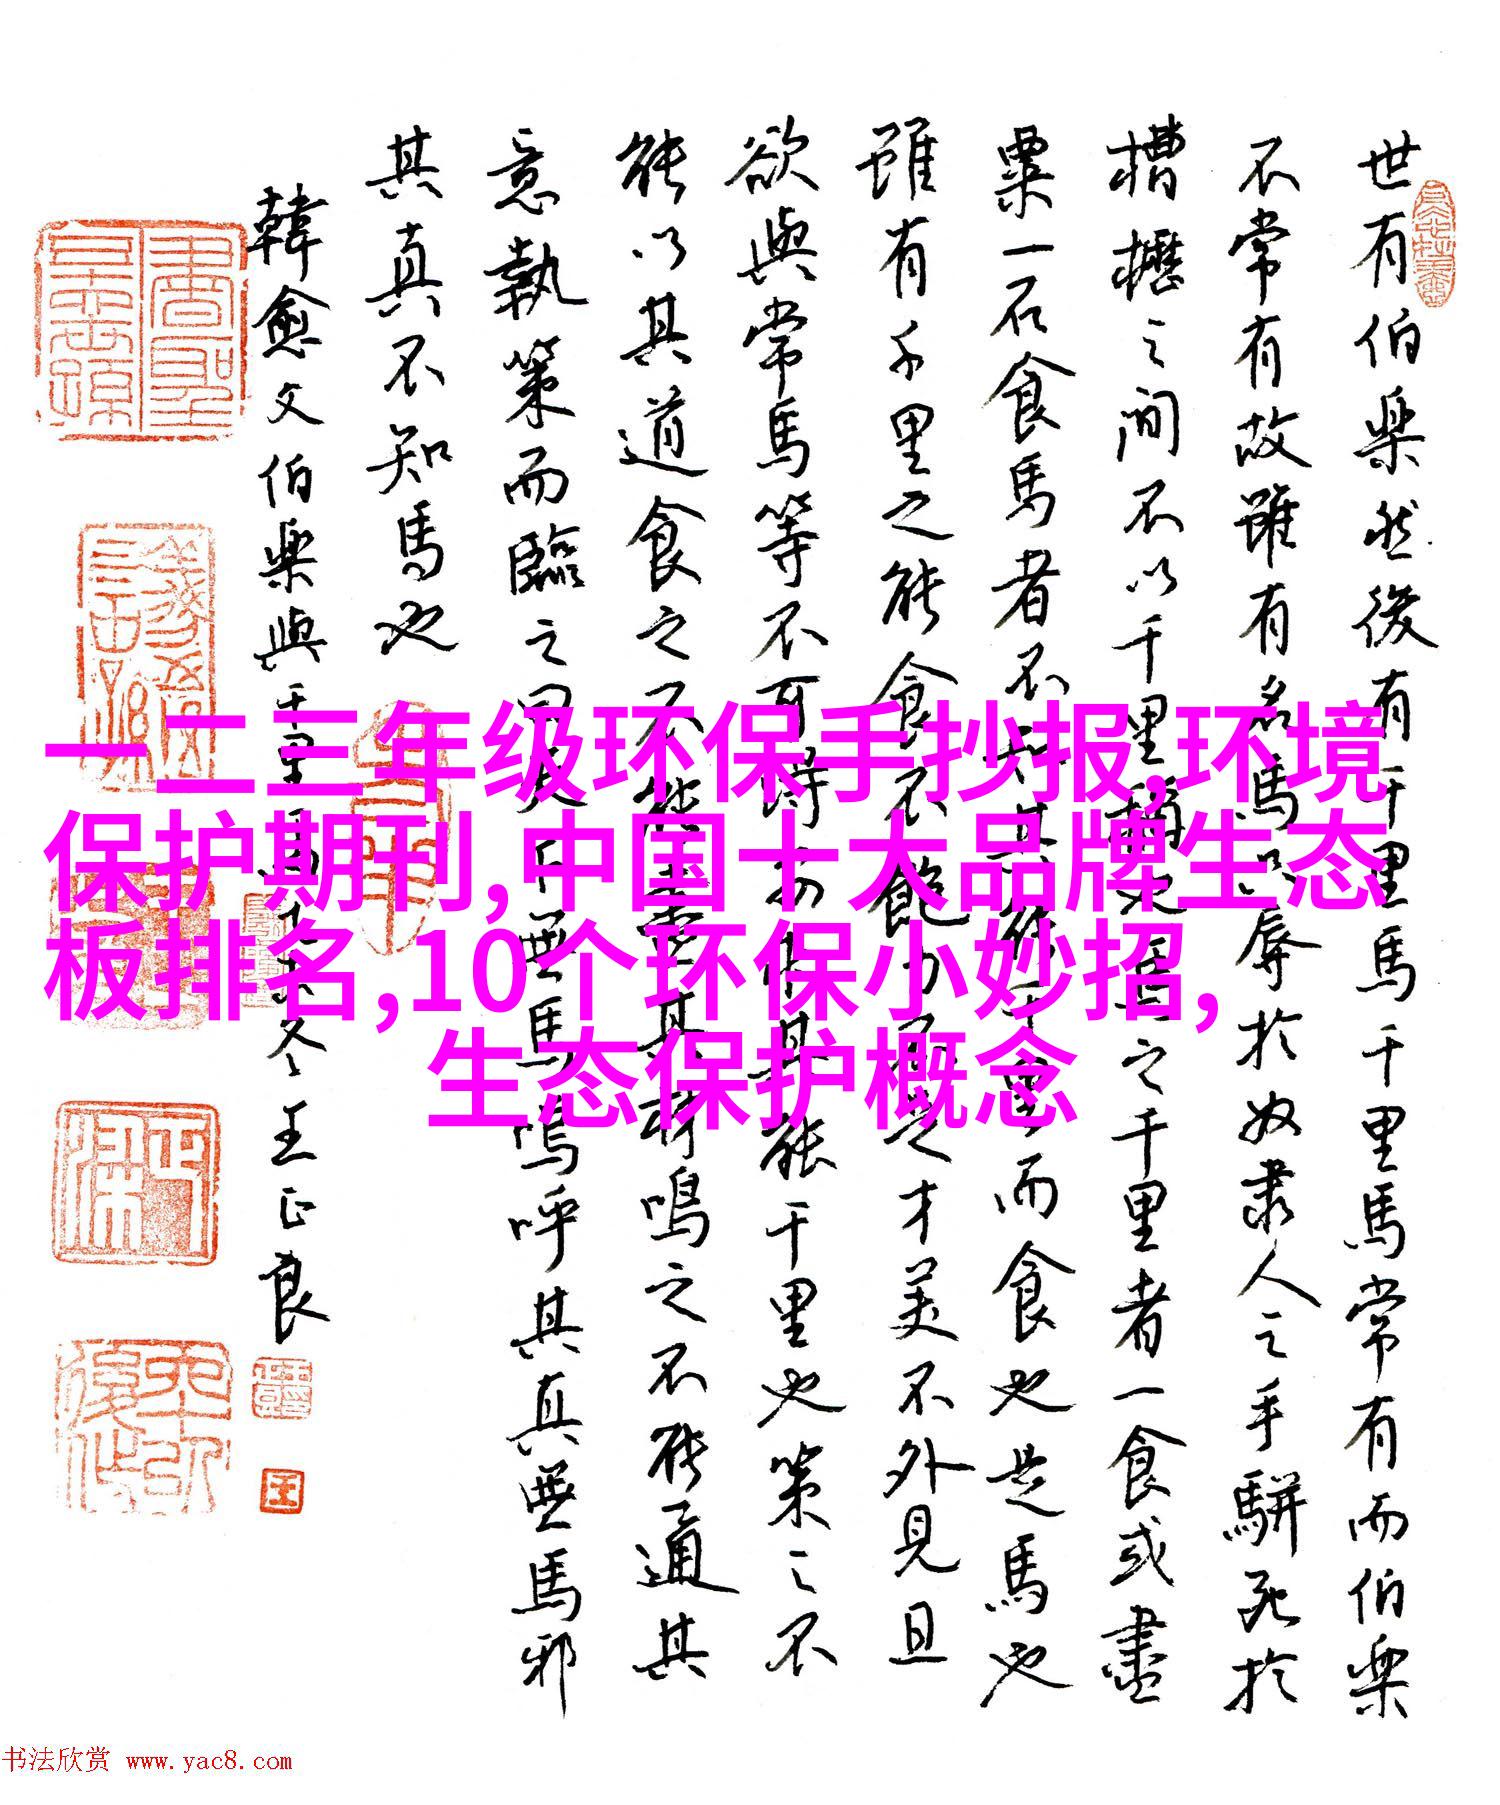 世有伯樂然後有千里馬千里馬常有而伯樂
不常有故雖有名馬辱於奴隸人之手駢死於
槽櫪之間不以千里稱也馬之千里者一食或盡
粟一石食馬者不知其能千里而食也是馬也
雖有千里之能食不飽力不足才美不外見且
欲與常馬等不可得安求其能千里也策之不
能以其道食之不能盡其材鳴之不能通其
意執策而臨之曰天下無馬嗚呼其真無馬邪
其真不知馬也
韓愈文伯樂與千里馬冬王正良
一二三年级环保手抄报,环境
保护期刊,中国十大品牌生态
板排名,10个环保小妙招,
生态保护概念
书法欣赏 www.yac8.com